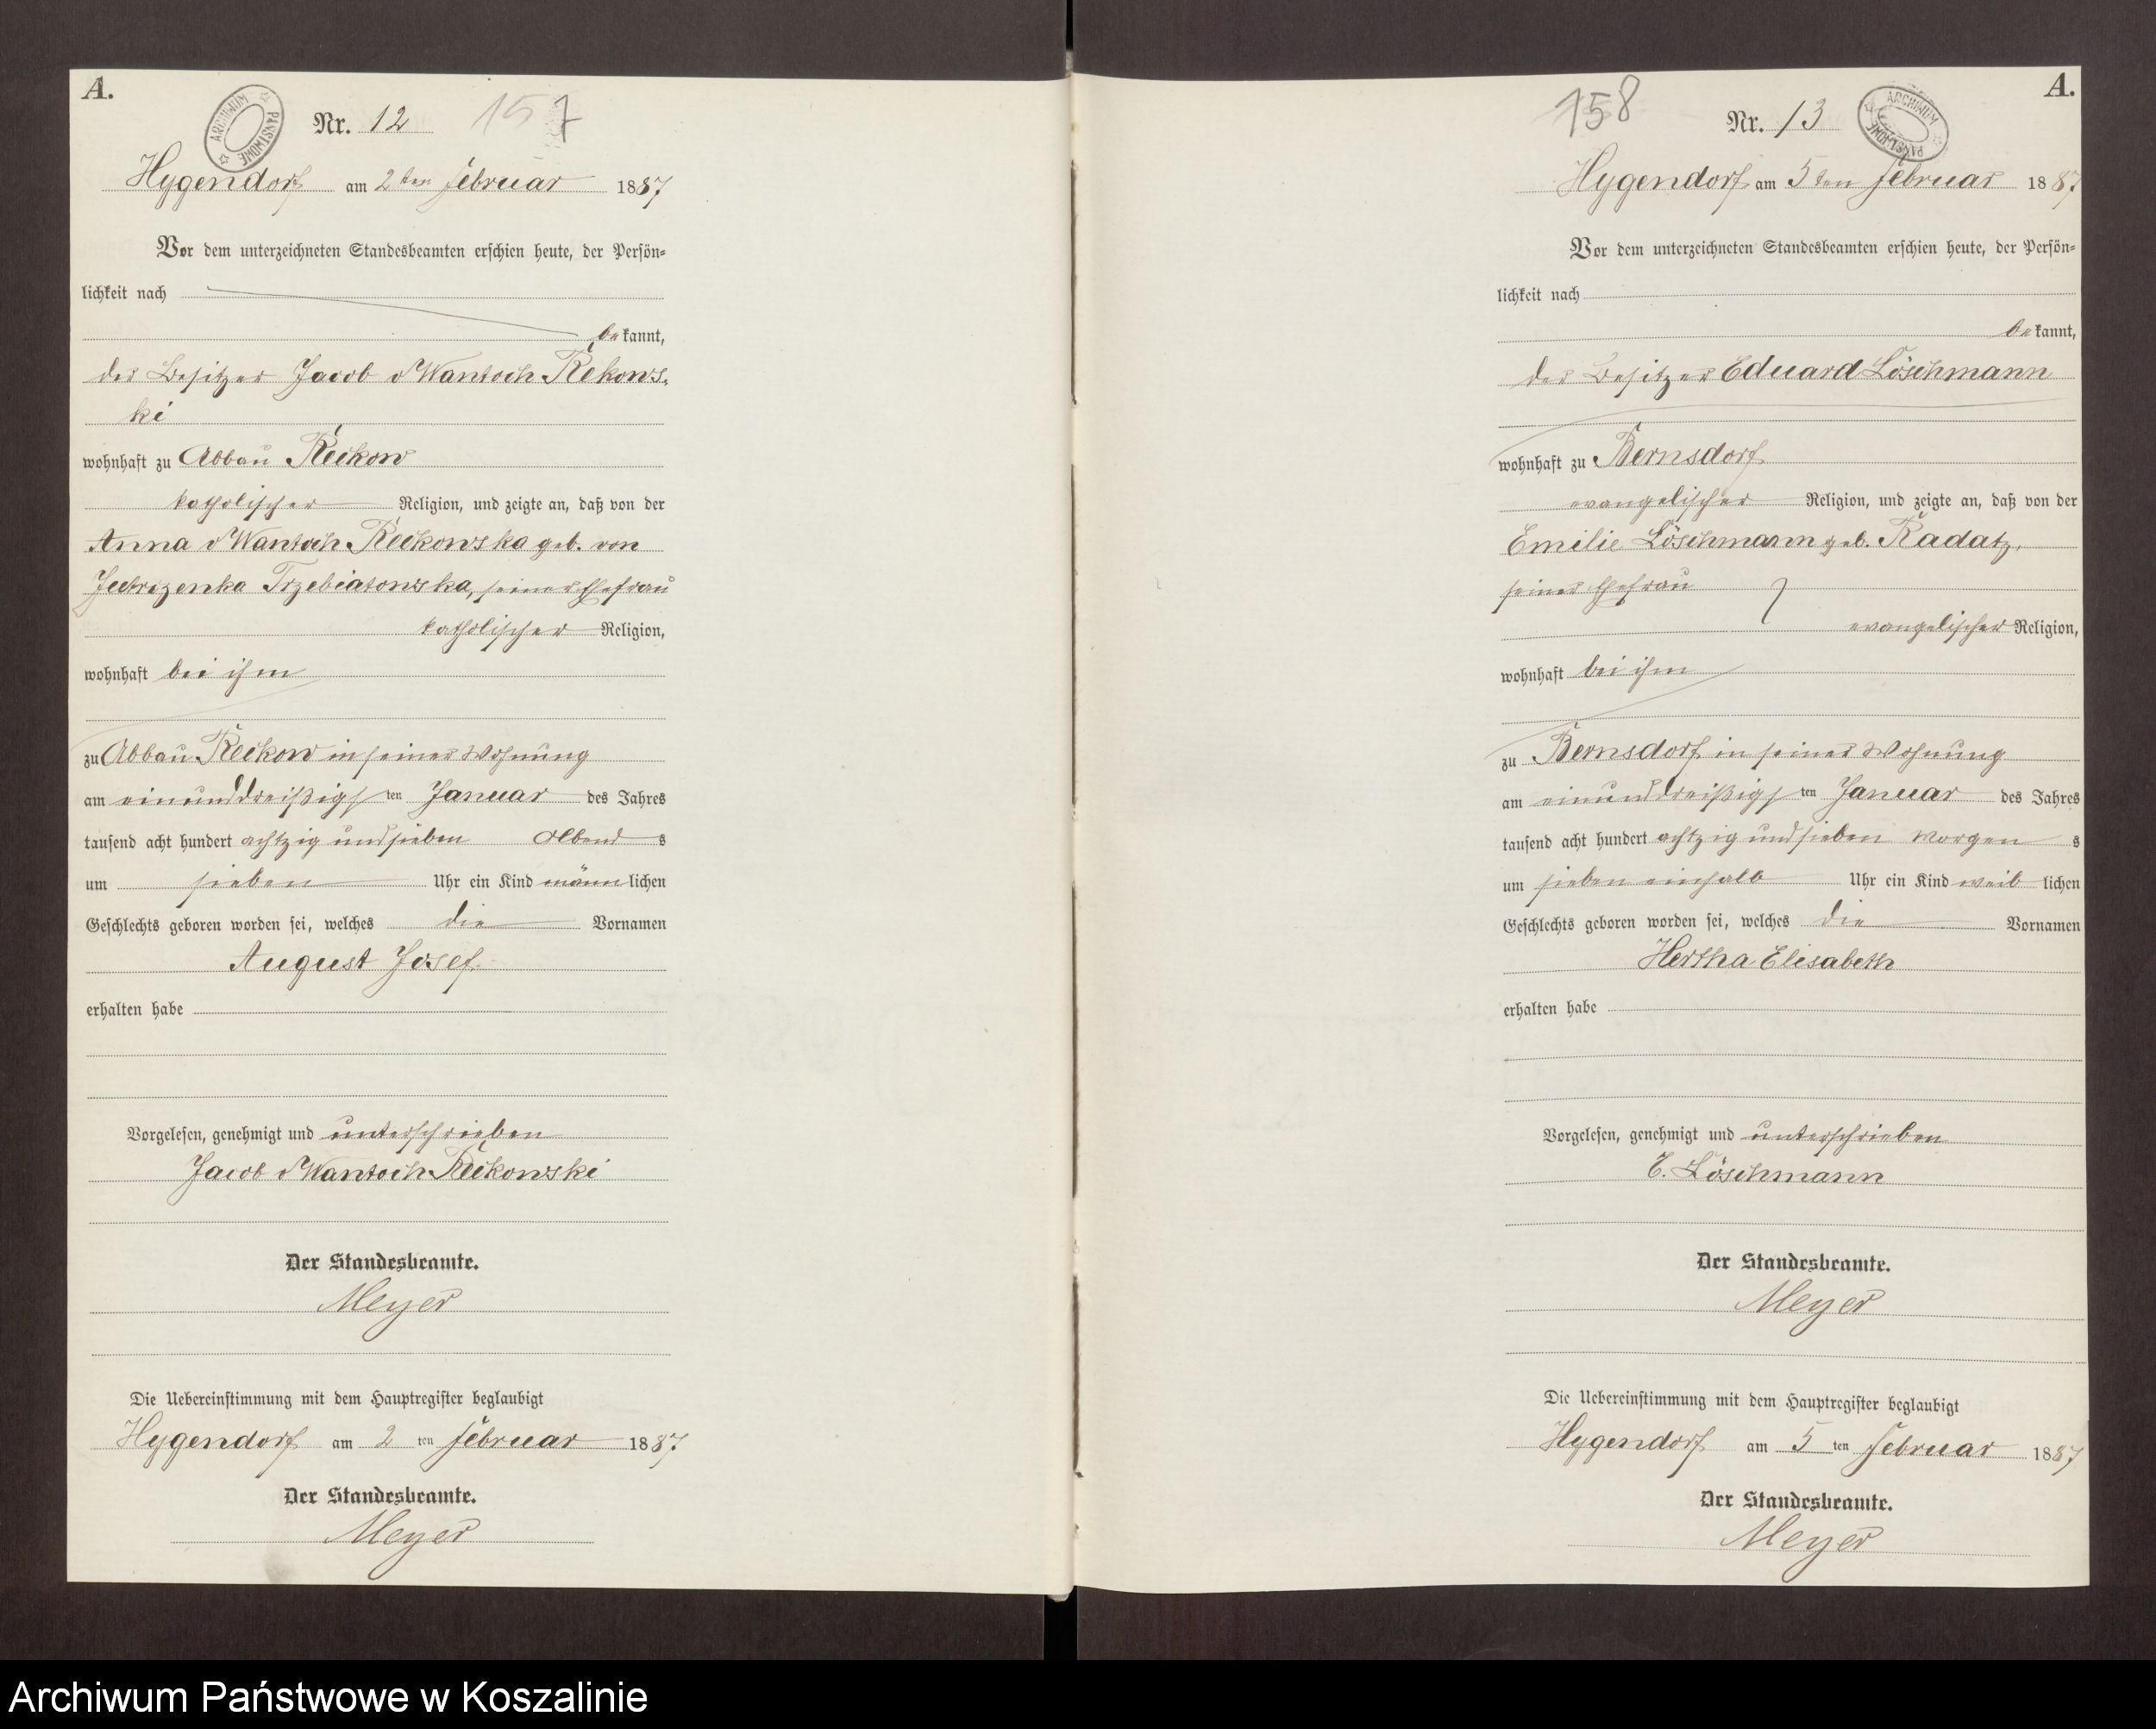 A.
ARCHIWUM PAŃSTWOWE
Nr. 12 157
Hygendorf am 2ten Februar 1887
Vor dem unterzeichneten Standesbeamten erschien heute, der Persön-
lichkeit nach
bekannt,
der Besitzer Jacob v Wantoch Rekows-
ki
wohnhaft zu Abbau Reckow
katholischer Religion, und zeigte an, daß von der
Anna v Wantoch Reckowska geb. von
Trzebiatowska, seiner Ehefrau
katholischer Religion,
wohnhaft bei ihm
zu Abbau Reckow in seiner Wohnung
am einunddreißigsten Januar des Jahres
tausend acht hundert achtzig und sieben Abends
um sieben Uhr ein Kind männlichen
Geschlechts geboren worden sei, welches die Vornamen
August Josef
erhalten habe
Vorgelesen, genehmigt und unterschrieben
Jacob v Wantoch Reckowski
Der Standesbeamte.
Meyer
Die Uebereinstimmung mit dem Hauptregister beglaubigt
Hygendorf am 2ten Februar 1887
Der Standesbeamte.
Meyer
A.
158 Nr. 13
ARCHIWUM PAŃSTWOWE
Hygendorf am 5ten Februar 1887
Vor dem unterzeichneten Standesbeamten erschien heute, der Persön-
lichkeit nach
bekannt,
der Besitzer Eduard Löschmann
wohnhaft zu Bernsdorf
evangelischer Religion, und zeigte an, daß von der
Emilie Löschmann geb. Radatz,
seiner Ehefrau
evangelischer Religion,
wohnhaft bei ihm
zu Bernsdorf in seiner Wohnung
am einunddreißigsten Januar des Jahres
tausend acht hundert achtzig und sieben Morgens
um sieben einhalb Uhr ein Kind weiblichen
Geschlechts geboren worden sei, welches die Vornamen
Hertha Elisabeth
erhalten habe
Vorgelesen, genehmigt und unterschrieben
E. Löschmann
Der Standesbeamte.
Meyer
Die Uebereinstimmung mit dem Hauptregister beglaubigt
Hygendorf am 5ten Februar 1887
Der Standesbeamte.
Meyer
Archiwum Państwowe w Koszalinie